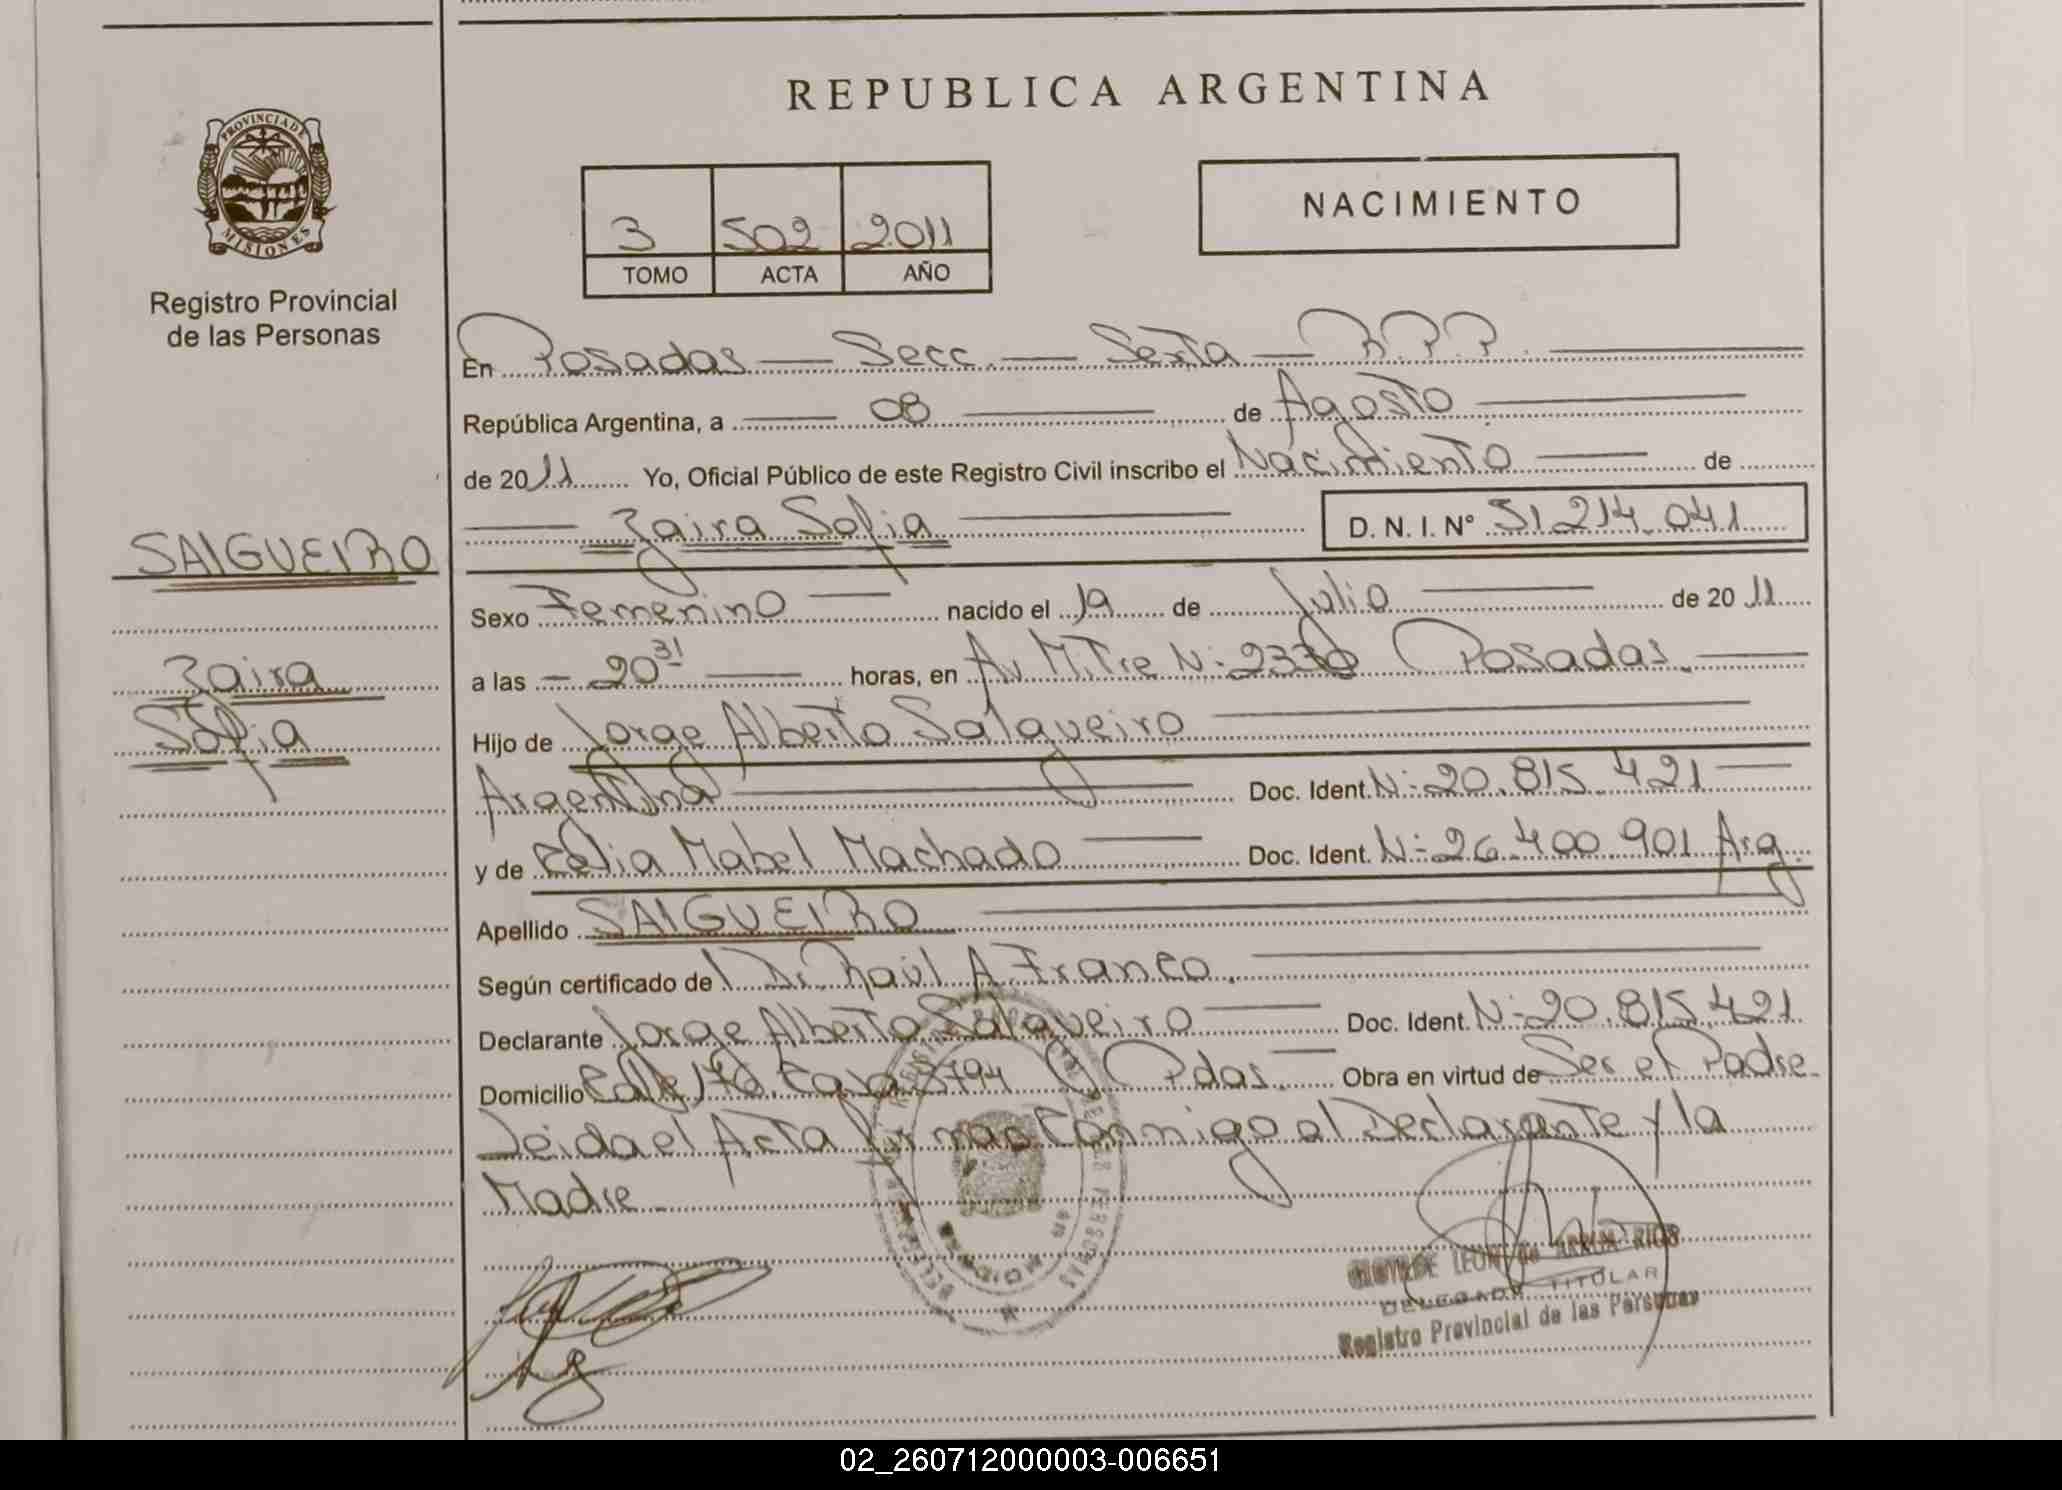 REPUBLICA ARGENTINA
PROVINCIA DE
MISIONES
Registro Provincial
de las Personas
3 502 2011
TOMO ACTA AÑO
NACIMIENTO
En Posadas — Secc. — Sexta — R.P.P.
República Argentina, a — 08 — de Agosto —
de 2011 Yo, Oficial Público de este Registro Civil inscribo el Nacimiento — de
— Zaira Sofia — D. N. I. N° 51.214.041
SALGUEIRO
Zaira
Sofia
Sexo Femenino — nacido el 19 de Julio — de 2011
a las — 20 31 — horas, en Av. Mitre N: Posadas. —
Hijo de Jorge Alberto Salgueiro —
Argentina — Doc. Ident. N: 20.815.421 —
y de Celia Mabel Machado — Doc. Ident. N: 26.400.901 Arg.
Apellido SALGUEIRO —
Según certificado del Dr. Raúl A Franco. —
Declarante Jorge Alberto Salgueiro — Doc. Ident. N: 20.815.421
Domicilio Calle Casa Pdas. — Obra en virtud de Ser el Padre.
Leida el Acta firman conmigo el Declarante y la
Madre.
LEONI de RIOS
DELEGADA TITULAR
Registro Provincial de las Personas
02_260712000003-006651